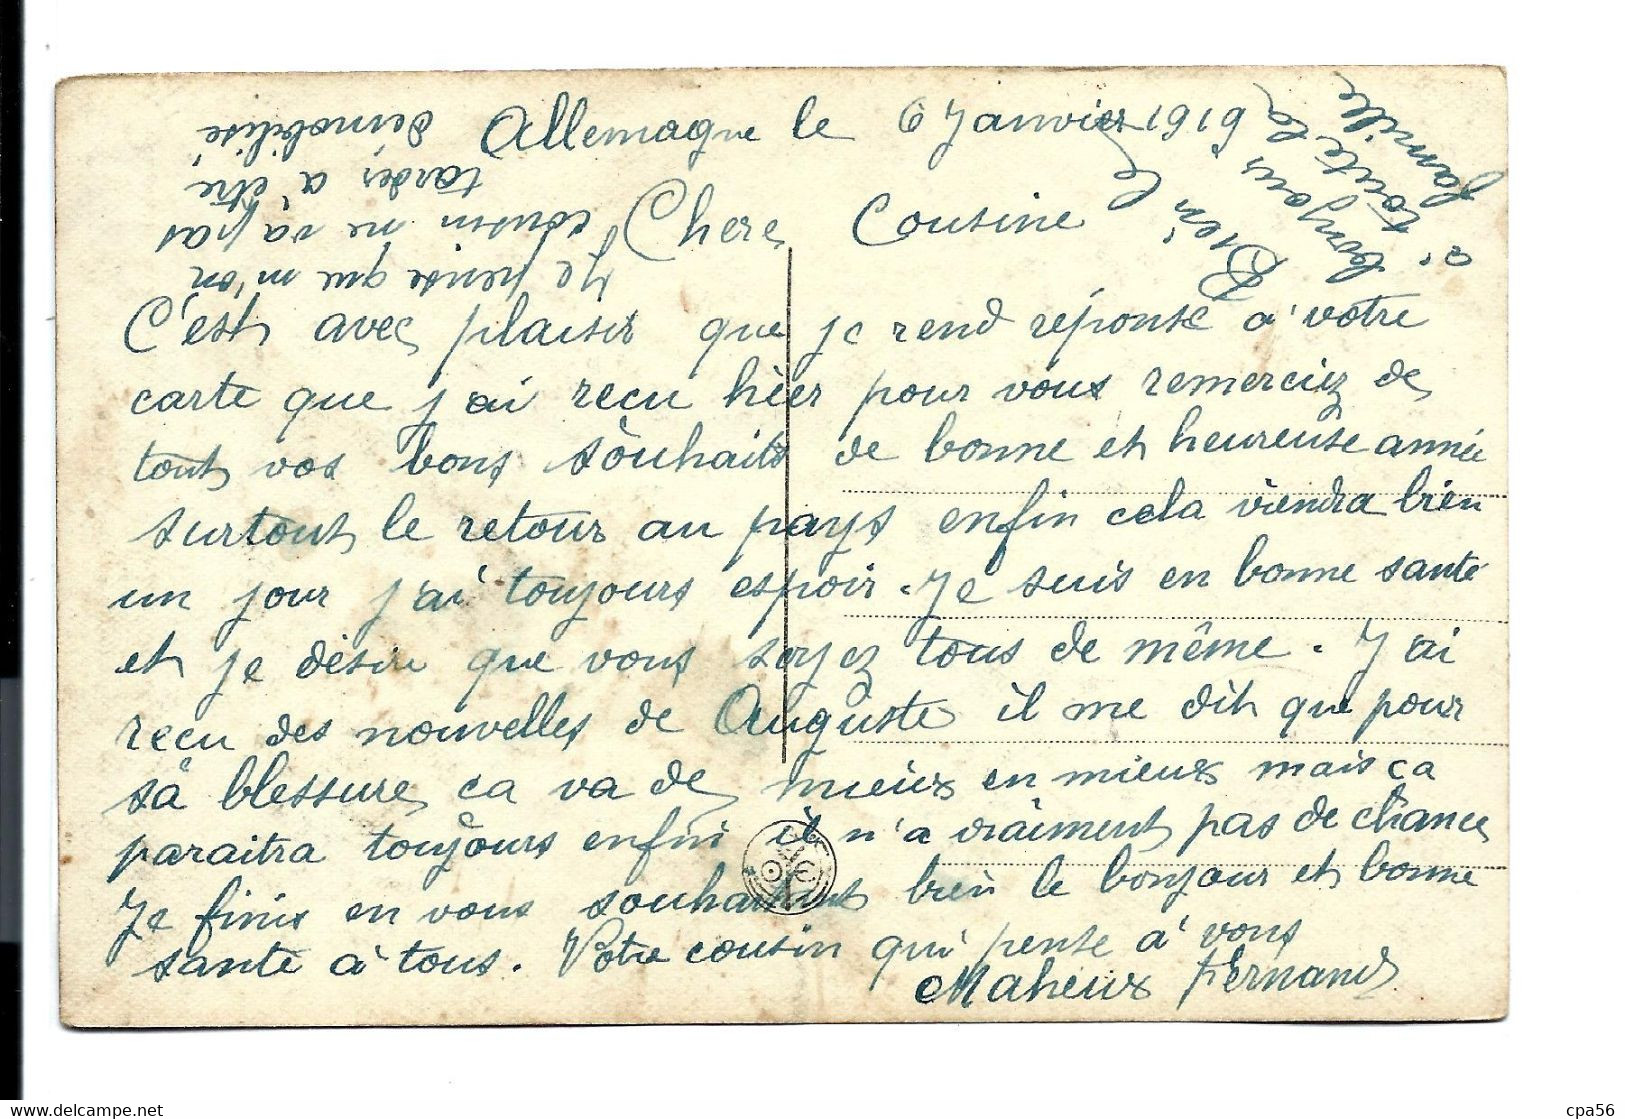 Allemagne le 6 Janvier 1919
Chere Cousine
C'est avec plaisir que je rend réponse a' votre
carte que j'ai reçu hier pour vous remerciez de
tout vos bons souhaits de bonne et heureuse année
surtout le retour au pays enfin cela viendra bien
un jour j'ai toujours espoir. Je suis en bonne santé
et je désire que vous soyez tous de même. J'ai
reçu des nouvelles de Auguste il me dit que pour
sa blessure ca va de mieux en mieux mais ça
paraitra toujours enfin il n'a vraiment pas de chance
Je finis en vous souhaitant bien le bonjour et bonne
santé à tous. Votre cousin qui pense à vous
Maheux Fernand
Je pense que m'on
cousin ne va pas
tarder a être
démobilisé
Bien le
bonjour
a' toute la
famille
cpa56